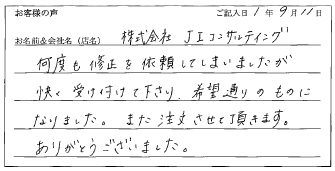 お客様の声 ご記入日 1年 9月 11日
お名前&会社名(店名) 株式会社 JIコンサルティング
何度も修正を依頼してしまいましたが
快く受け付けて下さり、希望通りのものに
なりました。また注文させて頂きます。
ありがとうございました。